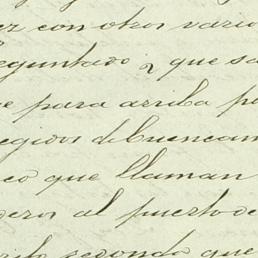 ez con otros vario
reguntado q que sa
e para arriba p
egidos de Cuencam
co que llaman
deros al puerto de
segundo que